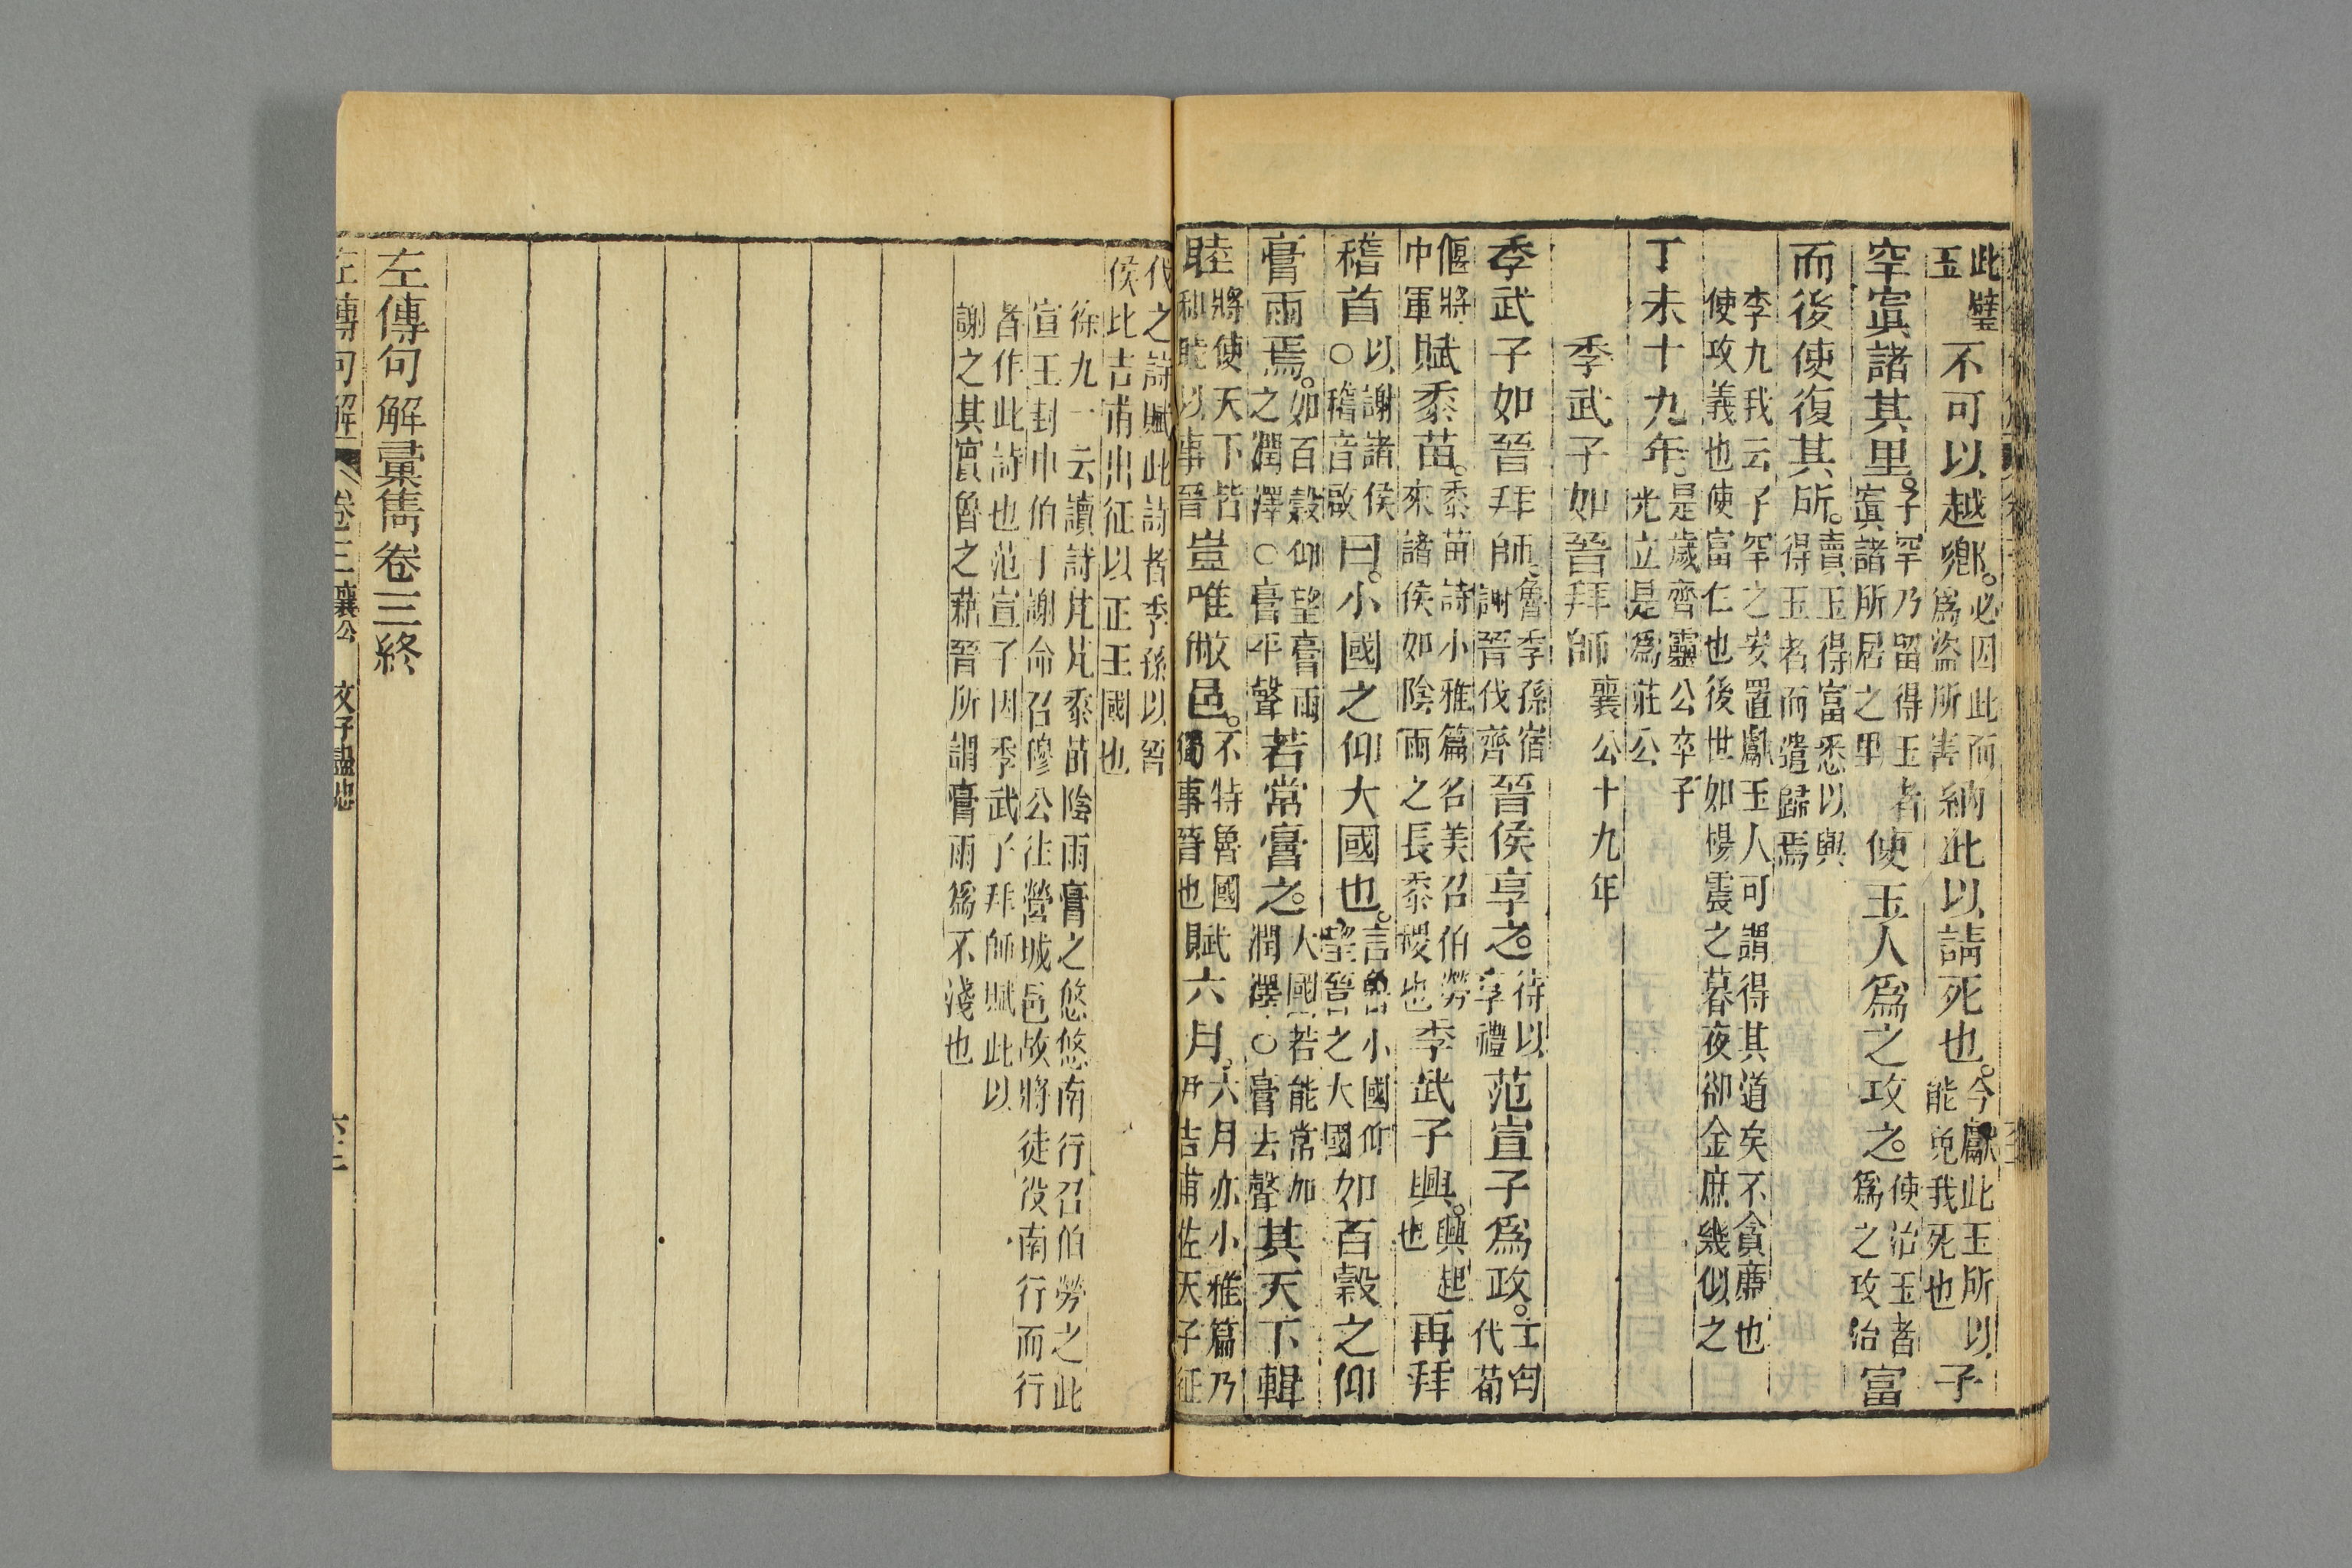 此璧不可以越鄉必因此而納此以請死也今獻此玉所以子
玉爲盜所害能免我死也
罕寘諸其里子罕乃留得玉者使玉人爲之攻之使治玉者富
寘諸所居之里爲之攻治
而後使復其所賣玉得富悉以與
得玉者而遣歸焉
李九我云子罕之安置獻玉人可謂得其道矣不貪廉也
使攻義也使富仁也後世如楊震之暮夜卻金庶幾似之
丁未十九年是歲齊靈公卒子
光立是爲莊公
季武子如晉拜師襄公十九年
季武子如晉拜師魯季孫宿晉侯享之待以范宣子爲政士匄
謝晉伐齊享禮代荀
偃將賦黍苗黍苗詩小雅篇名美召伯勞季武子興興起再拜
中軍來諸侯如陰雨之長黍稷也也
稽首以謝諸侯曰小國之仰大國也言魯小國仰如百穀之仰
○稽音啟望晉之大國
膏雨焉如百穀仰望膏雨若常膏之大國若能常加其天下輯
之潤澤○膏平聲潤澤○膏去聲
睦將使天下皆豈唯敝邑不特魯國賦六月六月亦小雅篇乃
和睦以事晉獨事晉也尹吉甫佐天子征
代之詩賦此詩者季孫以晉
侯比吉甫出征以正王國也
徐九一云讀詩芃芃黍苗陰雨膏之悠悠南行召伯勞之此
宣王封申伯于謝命召穆公往營城邑故將徒役南行而行
者作此詩也范宣子因季武子拜師賦此以
謝之其實魯之藉晉所謂膏雨爲不淺也
左傳句解彙雋卷三終
左傳句解 卷三 襄公